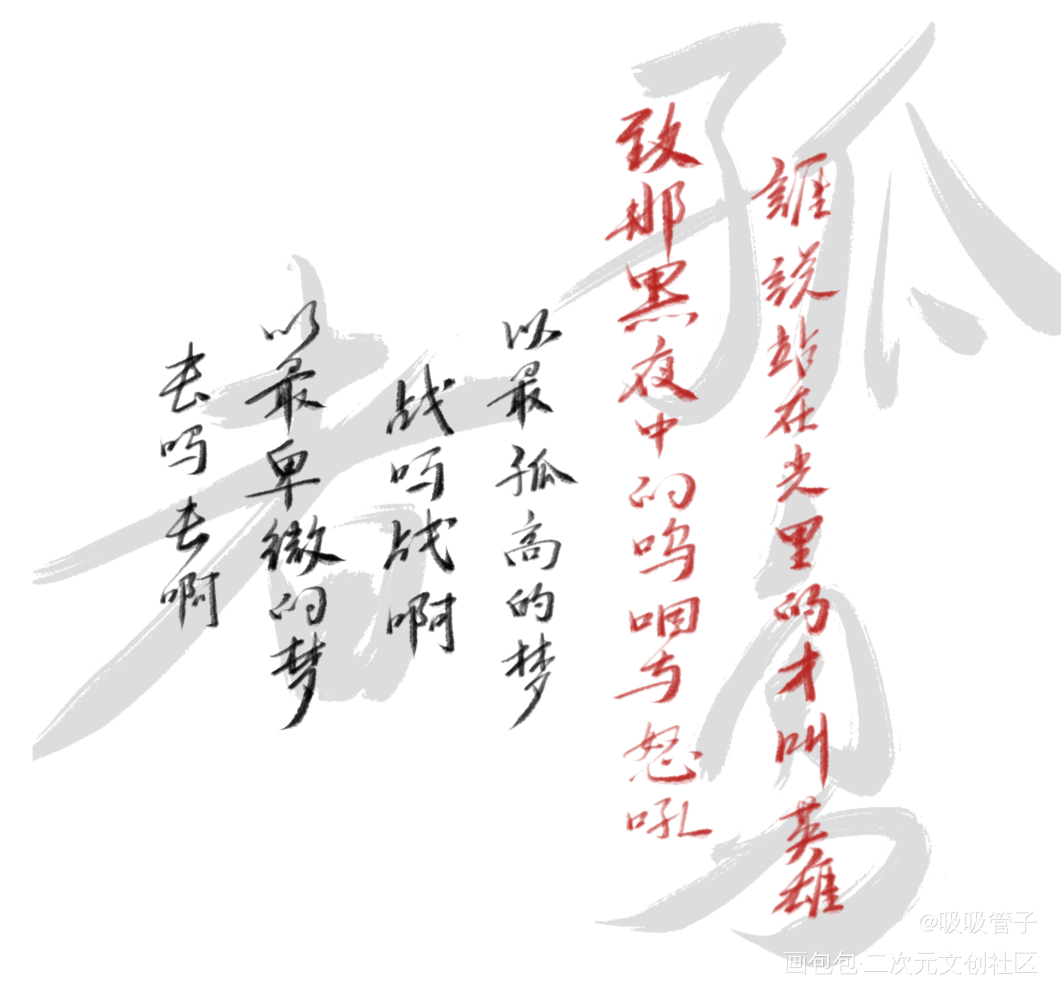 孤勇者
去吗去啊
以最卑微的梦
战吗战啊
以最孤高的梦
致那黑夜中的呜咽与怒吼
誰説站在光里的才叫英雄
@吸吸管子
画包包·二次元文创社区